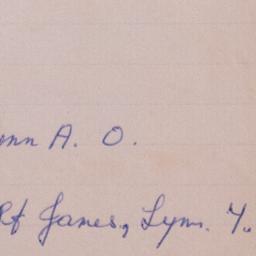 nn A. O.
Rt Janes., Lym. Y.